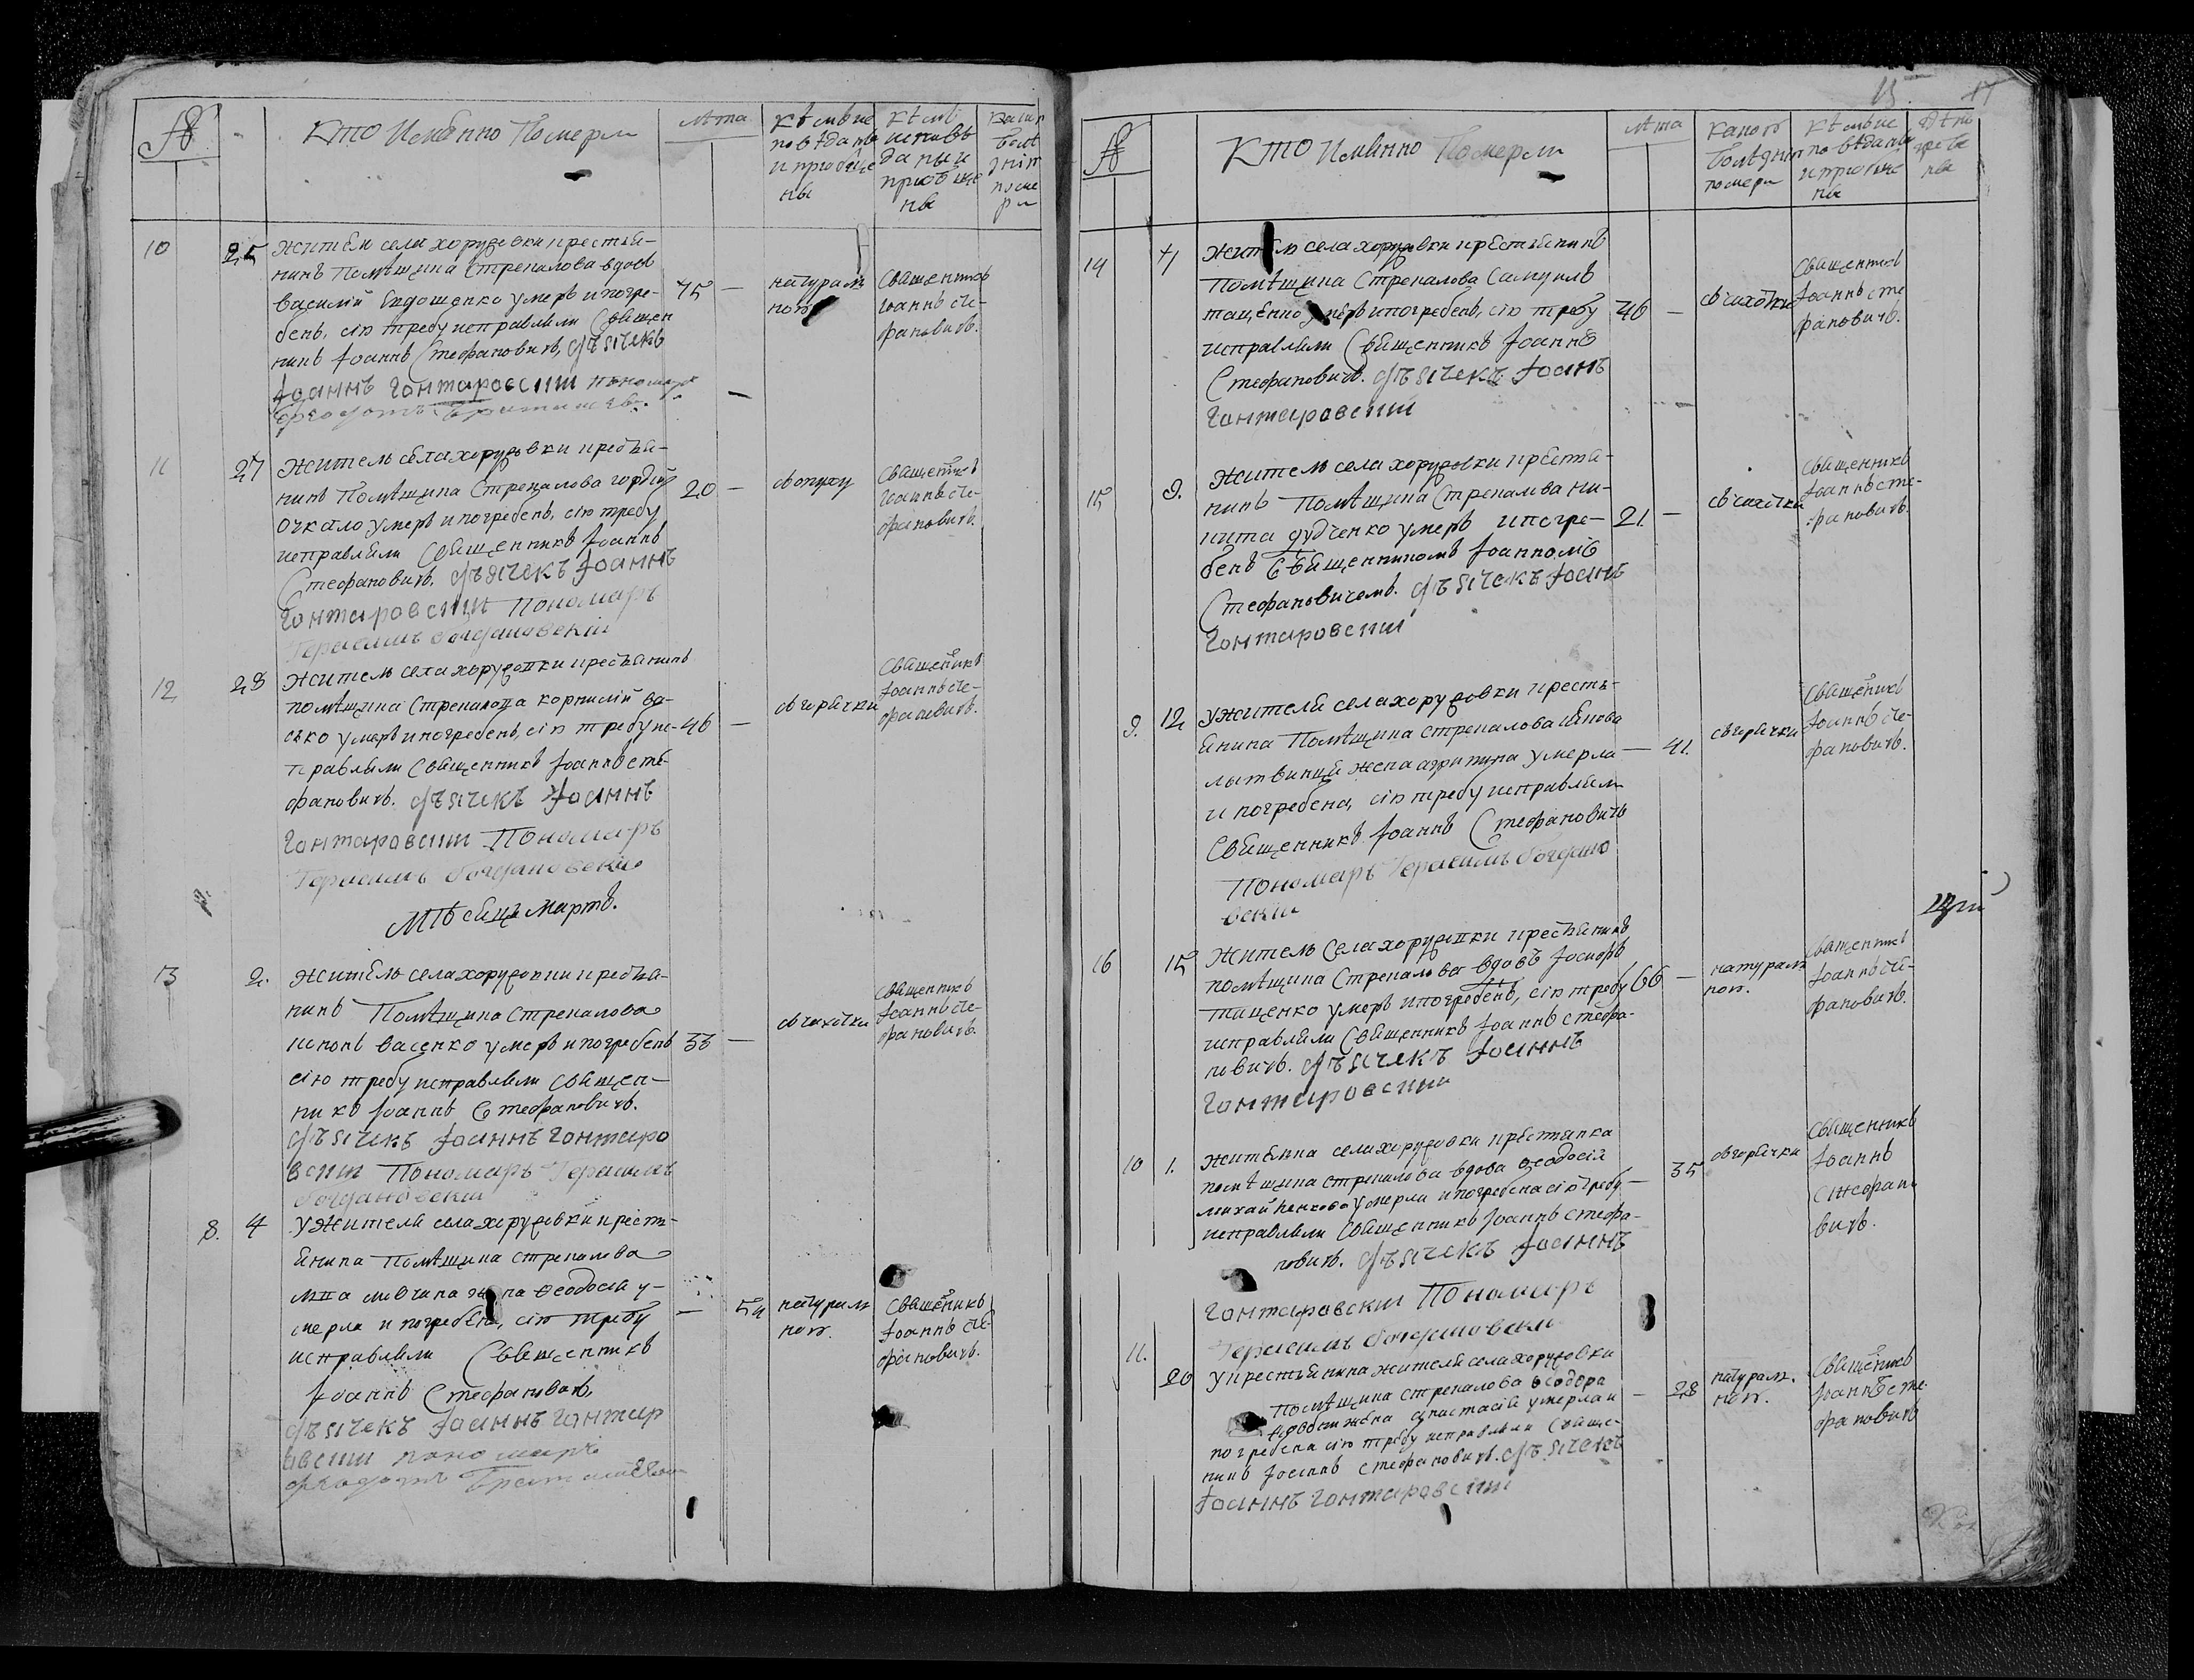 №
Кто Имѣнно Померли
Лѣта
Кѣмъ ис
повѣданы
и приобще
ны
Кѣмъ
исповѣ
даны и
приобще
ны
Какою
болѣ
знію
поме
рли
10 25 Житель села хоружовки крестья-
нинъ Помѣщика Стрекалова вдовъ
василій Евдощенко умеръ и погре-
бенъ, сію требу исправляли Священ
никъ Іоаннъ Стефановичъ, дьячекъ
Іоаннъ Гонтаровскій пономарь
45 —
натураль
ною
Священникъ
Іоаннъ Сте-
фановичъ.
11 27 Житель села хоружовки кресья-
нинъ Помѣщика Стрекалова гордій
Очкало умеръ и погребенъ, сію требу
исправляли Священникъ Іоаннъ
Стефановичъ. дьячекъ Іоаннъ
Гонтаровскій Пономарь
Герасимъ Богдановскій
20 —
Священикъ
Іоаннъ Сте-
фановичъ.
12 28 Житель села хоружовки кресьянинъ
помѣщика Стрекалова корнилій ва-
сько умеръ и погребенъ, сію требу ис-
правляли Священникъ Іоаннъ Сте-
фановичъ. дьячекъ Іоаннъ
Гонтаровскій Пономарь
Герасимъ Богдановскій
46 —
въ горячки
Священикъ
Іоаннъ Сте-
фановичъ.
Мѣсяцъ Мартъ.
13 2. Житель села хоружовки кресья-
нинъ Помѣщика Стрекалова
васенко умеръ и погребенъ
сію требу исправляли Священ-
никъ Іоаннъ Стефановичъ.
дьячекъ Іоаннъ Гонтаро
вскій Пономарь Герасимъ
Богдановскій
33 —
въ чахотки
Священникъ
Іоаннъ Сте-
фановичъ.
8. 4 У Жителя села хоружовки кресть-
янина Помѣщика Стрекалова
жена Ѳеодосия у-
мерла и погребена, сію требу
исправляли Священникъ
Іоаннъ Стефановичъ,
дьячекъ Іоаннъ Гонтар
овскій пономарь
— 54
натураль
ною.
Священикъ
Іоаннъ Сте-
фановичъ.
№
Кто Имѣнно Померли
Лѣта
Какою
болѣзнію
померли
Кѣмъ ис
повѣданы
и приобще
ны
Гдѣ по
гребе
ны
14 Житель села хоружовки крестьянинъ
Помѣщика Стрекалова Самуилъ
тащенко умеръ и погребенъ, сію требу
исправляли Священникъ Іоаннъ
Стефановичъ. дьячекъ Іоанъ
Гонтаровскій
46 —
въ чахотки
Священникъ
Іоаннъ Сте
фановичъ.
15 9. Житель села хоружовки крестья-
нинъ Помѣщика Стрекалова ни-
кита дудченко умеръ и погре-
бенъ Священникомъ Іоанномъ
Стефановичемъ. дьячекъ Іоанъ
Гонтаровскій
21. —
въ чахотки
Священникъ
Іоаннъ Сте-
фановичъ.
9. 12 У жителя села хоружовки кресть-
янина Помѣщика стрекалова
жена агрипина умерла
и погребена, сію требу исправляли
Священникъ Іоаннъ Стефановичъ
Пономарь Герасимъ Богдано
вскій
— 41.
въ горячки
Священикъ
Іоаннъ Сте-
фановичъ.
16 15 Житель Села хоружовки кресьянинъ
помѣщика Стрекалова вдовъ Іосифъ
тащенко умеръ и погребенъ, сію требу
исправляли Священникъ Іоаннъ Стефа-
новичъ. дьячекъ Іоаннъ
Гонтаровскій
66 —
натураль
ною.
Священникъ
Іоаннъ Сте-
фановичъ.
10 1. Жителька села хоружовки крестянка
помѣщика стрекалова вдова Ѳеодосія
умерла и погребена сію требу
исправляли Священникъ Іоаннъ Стефа-
новичъ. дьячекъ Іоаннъ
Гонтаровскій Пономарь
Герасимъ Богдановскій
— 35
въ горячки
Священникъ
Іоаннъ
Стефано
вичъ.
11. 20 У крестьянина жителя села хоружовки
Помѣщика стрекалова Ѳеодора
жена анастасія умерла и
погребена сію требу исправляли Свяще-
никъ Іоаннъ Стефановичъ. дьячекъ
Іоаннъ Гонтаровскій
— 28
натураль.
ною.
Священикъ
Іоаннъ Сте-
фановичъ